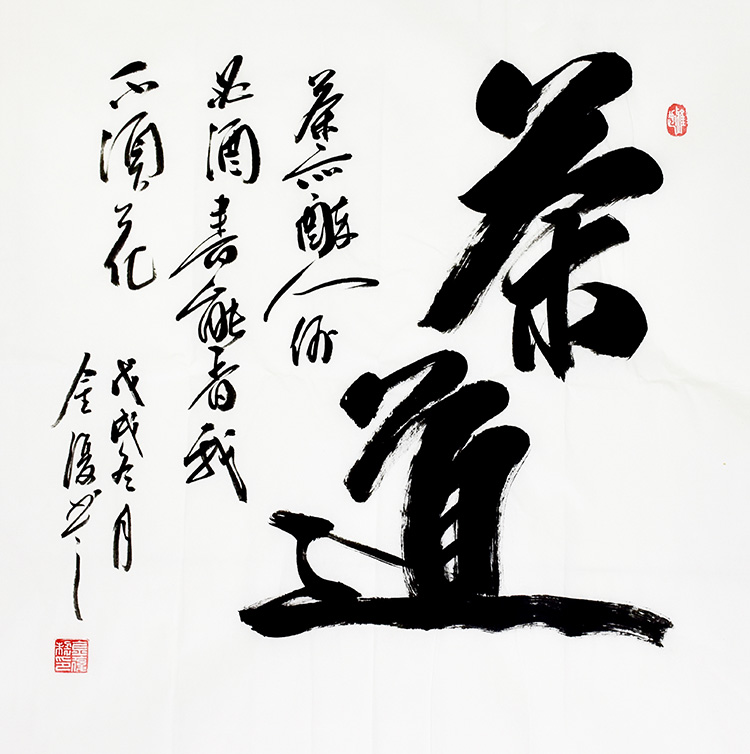 茶道
茶亦醉人何
必酒書能香我
不須花
戊戌冬月
金
书之